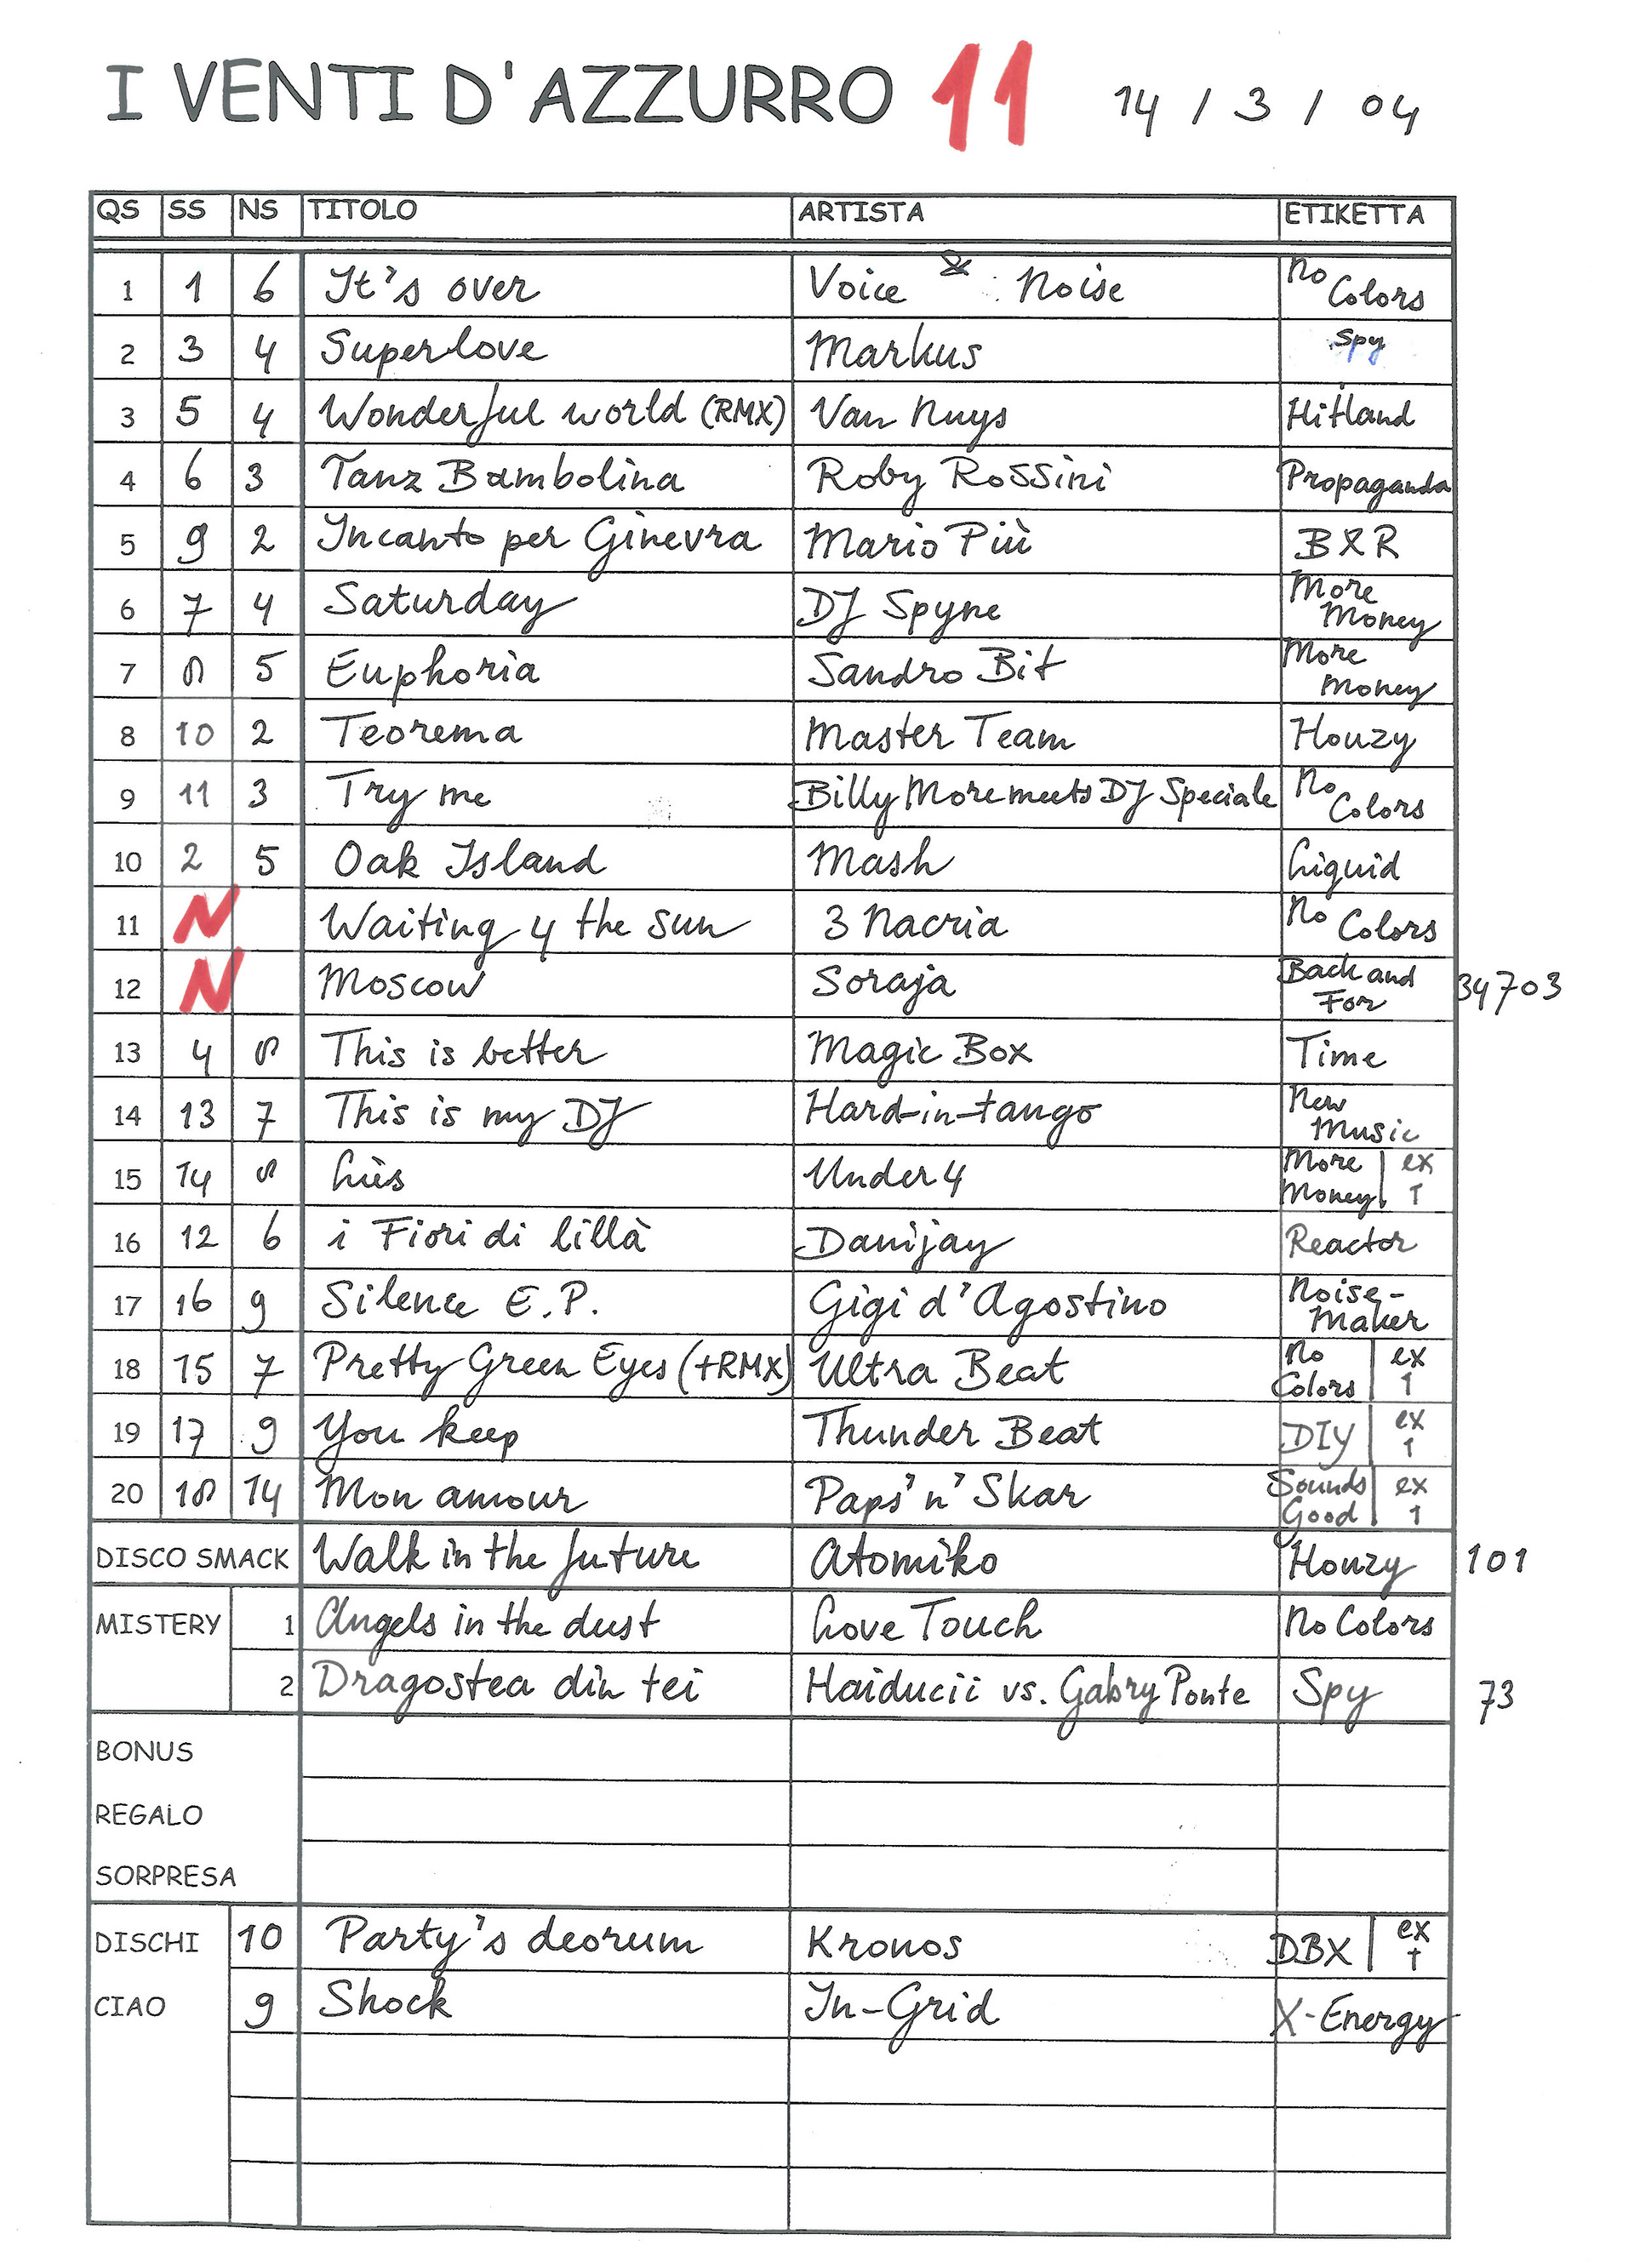 I VENTI D'AZZURRO 11 14 / 3 / 04
QS SS NS TITOLO ARTISTA ETIKETTA
1 1 6 It's over Voice & Noise No Colors
2 3 4 Superlove Markus Spy
3 5 4 Wonderful world (RMX) Van Nuys Hitland
4 6 3 Tanz Bambolina Roby Rossini Propaganda
5 9 2 Incanto per Ginevra Mario Più BXR
6 7 4 Saturday DJ Spyne More Money
7 8 5 Euphoria Sandro Bit More Money
8 10 2 Teorema Master Team Houzy
9 11 3 Try me Billy More meets DJ Speciale No Colors
10 2 5 Oak Island Mash Liquid
11 N Waiting 4 the sun 3 Nacria No Colors
12 N Moscow Soraja Back and For 34703
13 4 8 This is better Magic Box Time
14 13 7 This is my DJ Hard-in-tango New Music
15 14 8 Luis Under 4 More Money | ex 1
16 12 6 i Fiori di lillà Danijay Reactor
17 16 9 Silence E.P. Gigi d'Agostino Noise-Maker
18 15 7 Pretty Green Eyes (+RMX) Ultra Beat No Colors | ex 1
19 17 9 You keep Thunder Beat DIY | ex 1
20 18 14 Mon amour Paps'n'Skar Sounds Good | ex 1
DISCO SMACK Walk in the future Atomiko Houzy 101
MISTERY 1 Angels in the dust Love Touch No Colors
2 Dragostea din tei Haiducii vs. Gabry Ponte Spy 73
BONUS
REGALO
SORPRESA
DISCHI 10 Party's deorum Kronos DBX | ex 1
CIAO 9 Shock In-Grid X-Energy